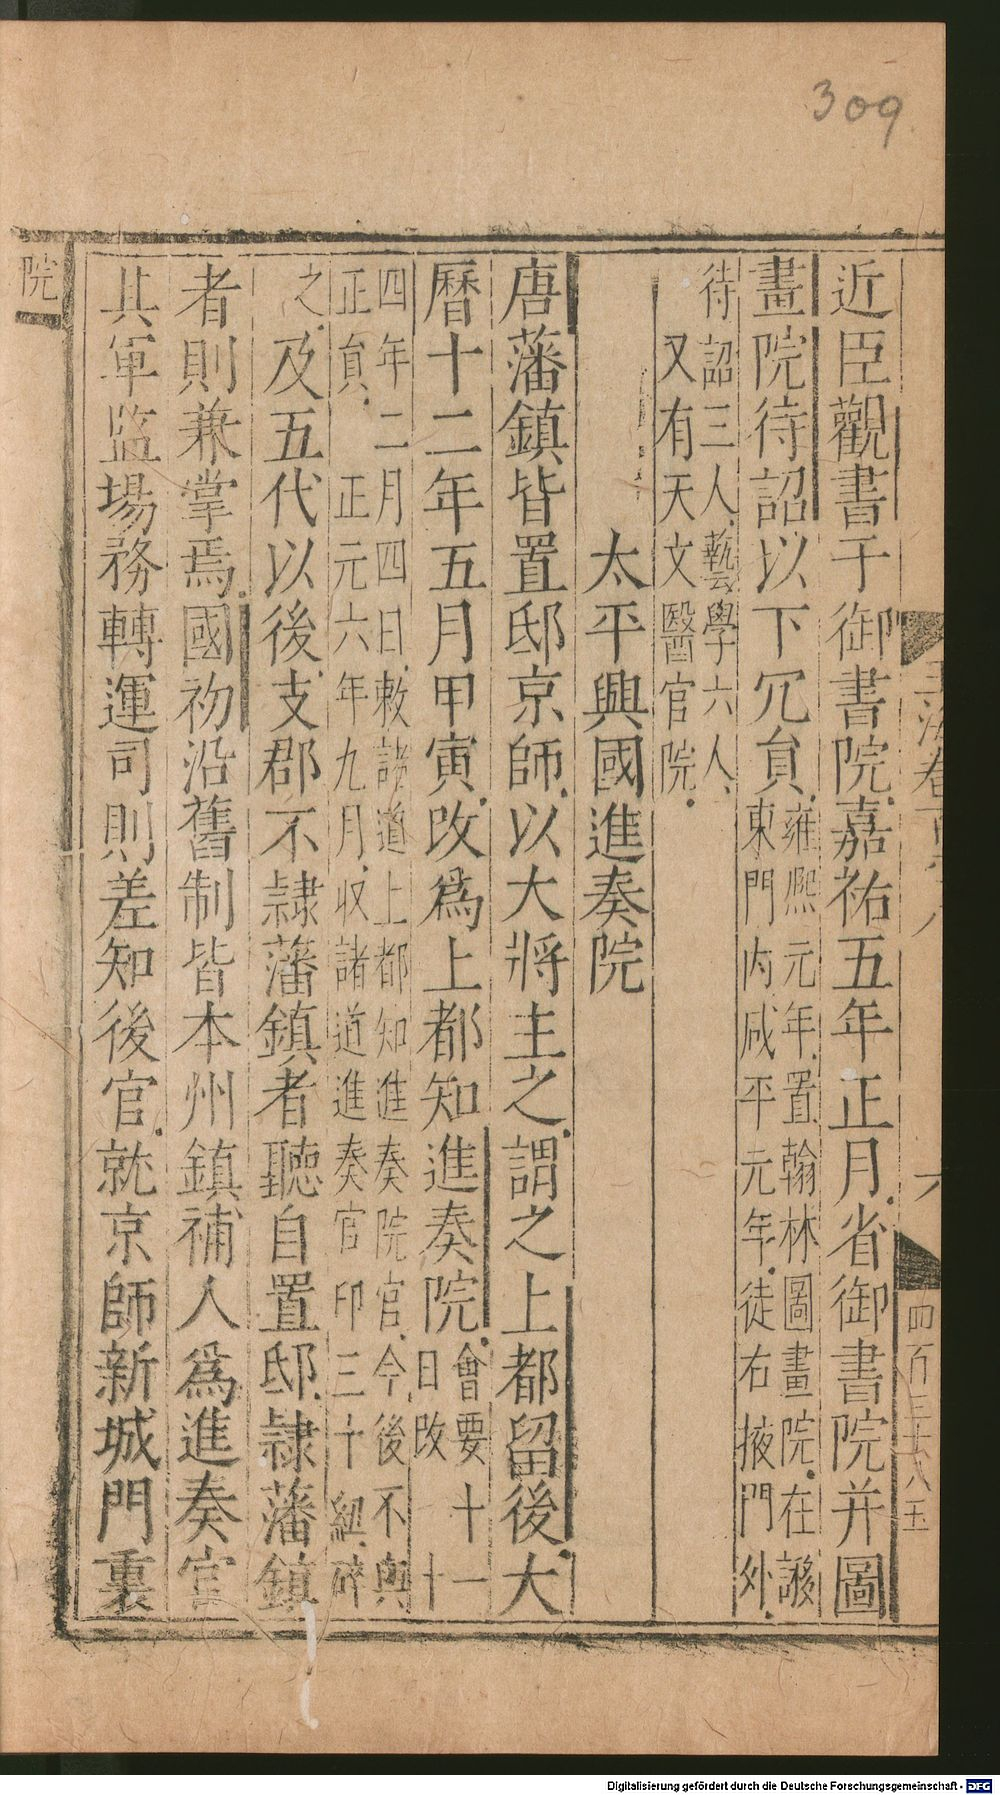 309
近臣觀書于御書院嘉祐五年正月省御書院并圖
畫院待詔以下冗貟雍熙元年置翰林圖畫院在
東門内咸平元年徒右掖門外
待詔三人藝學六人
又有天文醫官院
太平興國進奏院
唐藩鎮皆置邸京師以大將主之謂之上都留後大
曆十二年五月甲寅改爲上都知進奏院會要十一
日改十
四年二月四日敕諸道上都知進奏院官今後不與
正貟正元六年九月收諸道進奏官印三十紐碎
之及五代以後支郡不隷藩鎮者聽自置邸隷藩鎮
者則兼掌焉國初沿舊制皆本州鎮補人爲進奏官
其軍監場務轉運司則差知後官就京師新城門裏
院
六
四百三十八玉
Digitalisierung gefördert durch die Deutsche Forschungsgemeinschaft - DFG